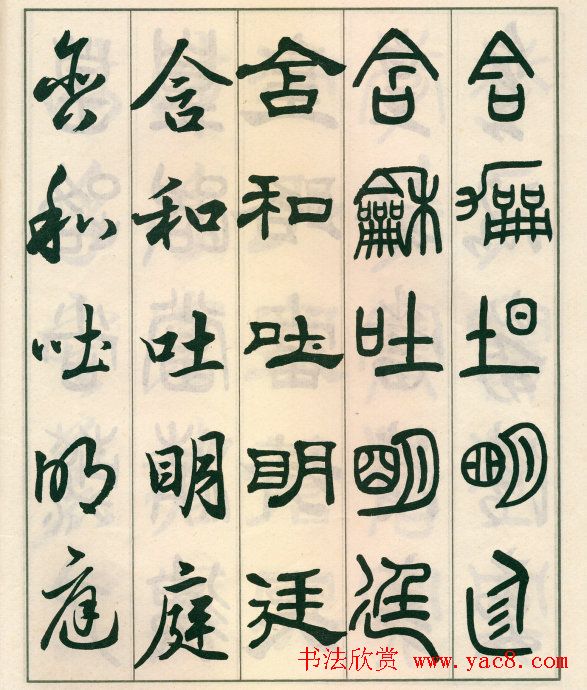 含明
含龢吐朙廷
含和吐明廷
含和吐明庭
含和吐明庭
书法欣赏 www.yac8.com